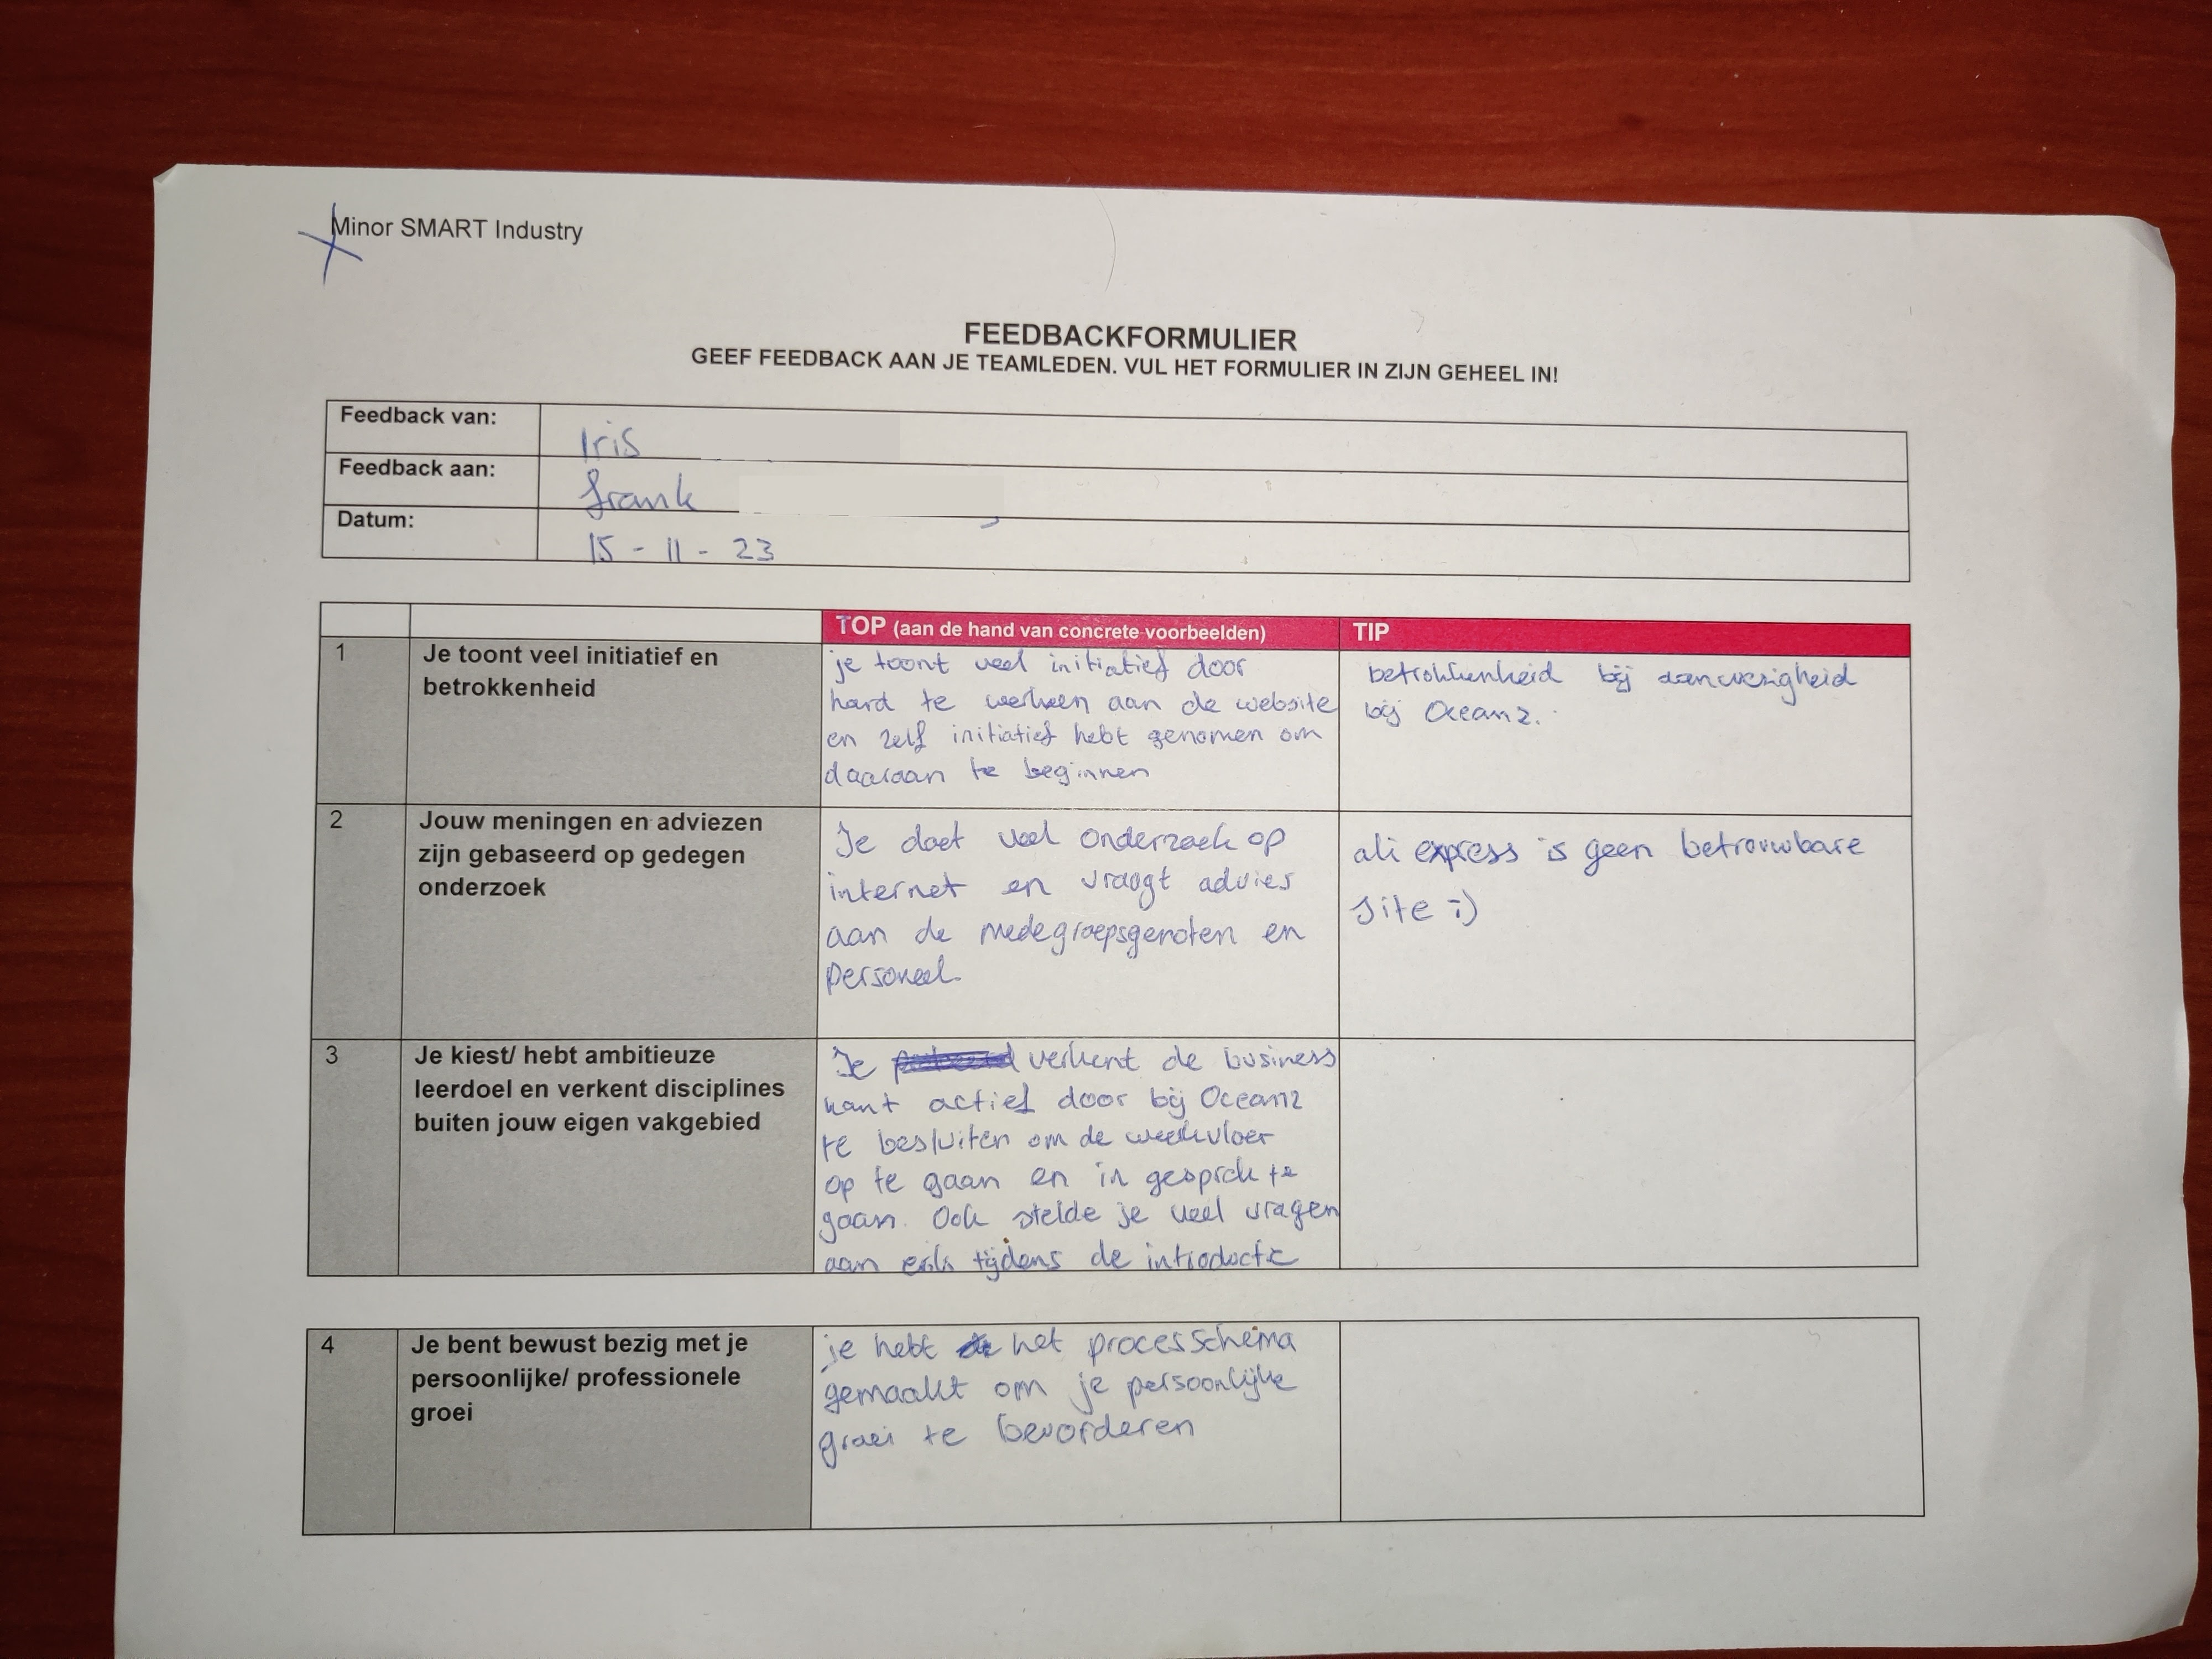 Minor SMART Industry
FEEDBACKFORMULIER
GEEF FEEDBACK AAN JE TEAMLEDEN. VUL HET FORMULIER IN ZIJN GEHEEL IN!
Feedback van:
Iris
Feedback aan:
frank
Datum:
15 - 11 - 23
TOP (aan de hand van concrete voorbeelden)
TIP
1
Je toont veel initiatief en
betrokkenheid
je toont veel initiatief door
hard te werken aan de website
en zelf initiatief hebt genomen om
daaraan te beginnen
betrokkenheid bij aanwezigheid
bij Oceanz.
2
Jouw meningen en adviezen
zijn gebaseerd op gedegen
onderzoek
Je doet veel onderzoek op
internet en vraagt advies
aan de medegroepsgenoten en
personeel
ali express is geen betrouwbare
site :)
3
Je kiest/ hebt ambitieuze
leerdoel en verkent disciplines
buiten jouw eigen vakgebied
Je verkent de business
kant actief door bij Oceanz
te besluiten om de werkvloer
op te gaan en in gesprek te
gaan. Ook stelde je veel vragen
aan erik tijdens de introductie
4
Je bent bewust bezig met je
persoonlijke/ professionele
groei
je hebt het processchema
gemaakt om je persoonlijke
groei te bevorderen